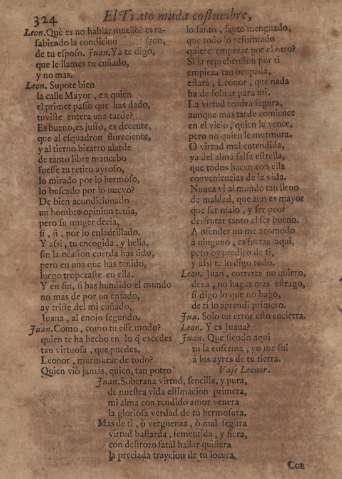 324
El Trato muda costumbre,
Leon. Què es no hablar
sabitado la condicion
de tu esposo. Juan. Ya te digo,
que le llames tu cuñado,
y no mas.
Leon. Supote bien
la calle Mayor, en quien
el primer passo que has dado,
tuviste entera una tarde?
Es bueno, es justo, es decente,
que al esquadron floreciente,
y al tierno bizarro alarde
de tanto libre mancebo
fuesse tu retiro ayroso,
lo mirado por lo hermoso,
lo buscado por lo nuevo?
De bien acondicionado
un hombre opinion tenia,
pero su muger decia,
si, si, por lo enladrillado.
Y assi, tu encogida, y bella,
sin la ocasion cuerda has sido,
pero en una que has tenido,
luego tropezaste en ella.
Y en fin, si has hundido el mundo
no mas de por un enfado,
ay triste del mi cuñado,
Juana, al enojo segundo.
Juan. Como, como tu esse modo?
quien te ha hecho en lo q̃ excedes
tan virtuosa, que puedes,
Leonor, murmurar de todo?
Quien viò jamàs, quien, tan potro
lo santo, santo
que todo lo reformado
quiere empezar por el otro?
Si la reprehension por ti
empieza tan ocupada,
estarà, Leonor, que nada
ha de sobrar para mi.
La virtud tendrà segura,
aunque mas tarde comience
en el vicio, quien le vence,
pero no quien le murmura.
O virtud mal entendida,
ya del alma falsa estrella,
que todos hacen con ella
conveniencias de la vida.
Nunca vi al mundo tan lleno
de maldad, que aun es mayor
que ser malo, y ser peor
desfrutar tanto al ser bueno.
A atender no me acomodo
à ninguno, es fuerza aqui,
pero
y assi te
Leon. Juan, correrte no quiero,
dexa, no hagas mas estrago,
si digo lo que no hago,
de ti lo aprendi primero.
Jua. Solo un error esto encierra.
Leon. Y es Juana?
Juan. Que siendo aqui
tu la enferma, yo me fui
à los ayres de tu tierra.
Vase Leonor.
Juan. Soberana virtud, sencilla, y pura,
de nuestra vida estimacion primera,
mi alma con rendido amor venera
la gloriosa verdad de tu hermosura.
Mas de ti, ò verguenza, ò mal segura
virtud bastarda, fementida, y fiera,
con destrozo fatal hallar quisiera
la preciada traycion de tu locura,
Con